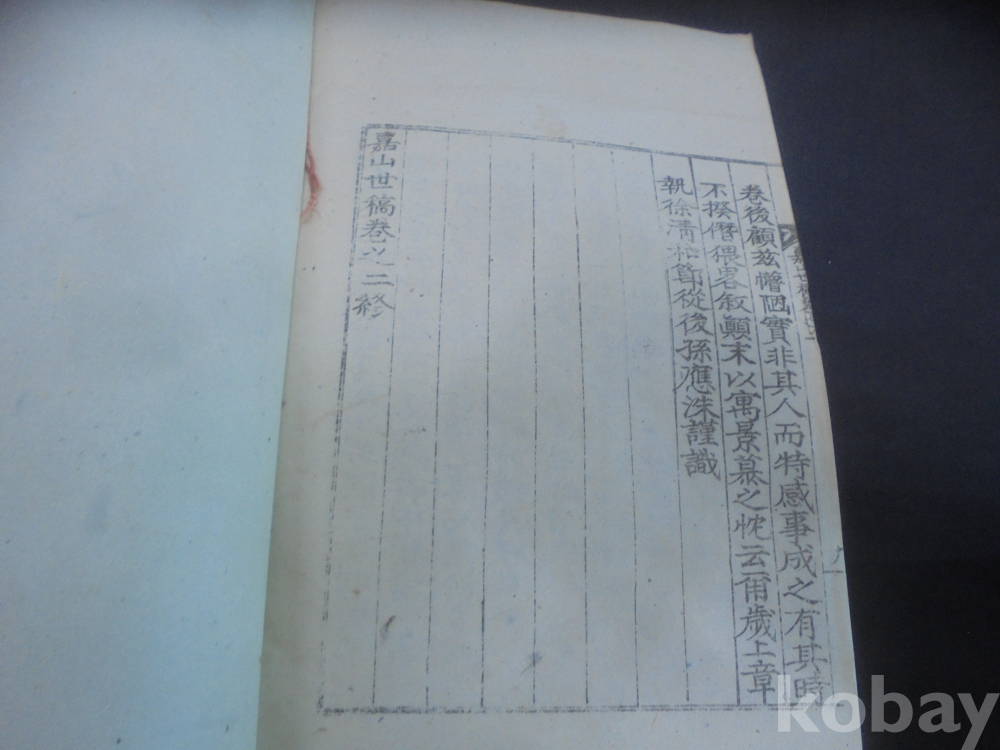 卷後顧茲懵陋實非其人而特感事成之有其時
不揆僭猥畧叙顚末以寓景慕之忱云爾歲上章
執徐淸和節從後孫應洙謹識
嘉山世稿卷之二終
kobay